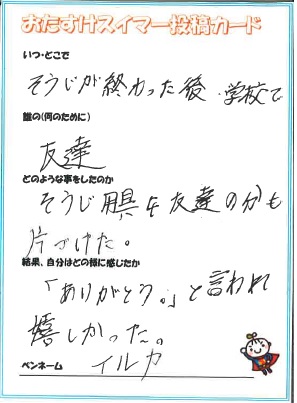 おたすけスイマー投稿カード
いつ・どこで
そうじが終わった後、学校で
誰の(何のために)
友達
どのような事をしたのか
そうじ用具を友達の分も
片づけた。
結果、自分はどの様に感じたか
「ありがとう。」と言われ
嬉しかった。
ペンネーム イルカ